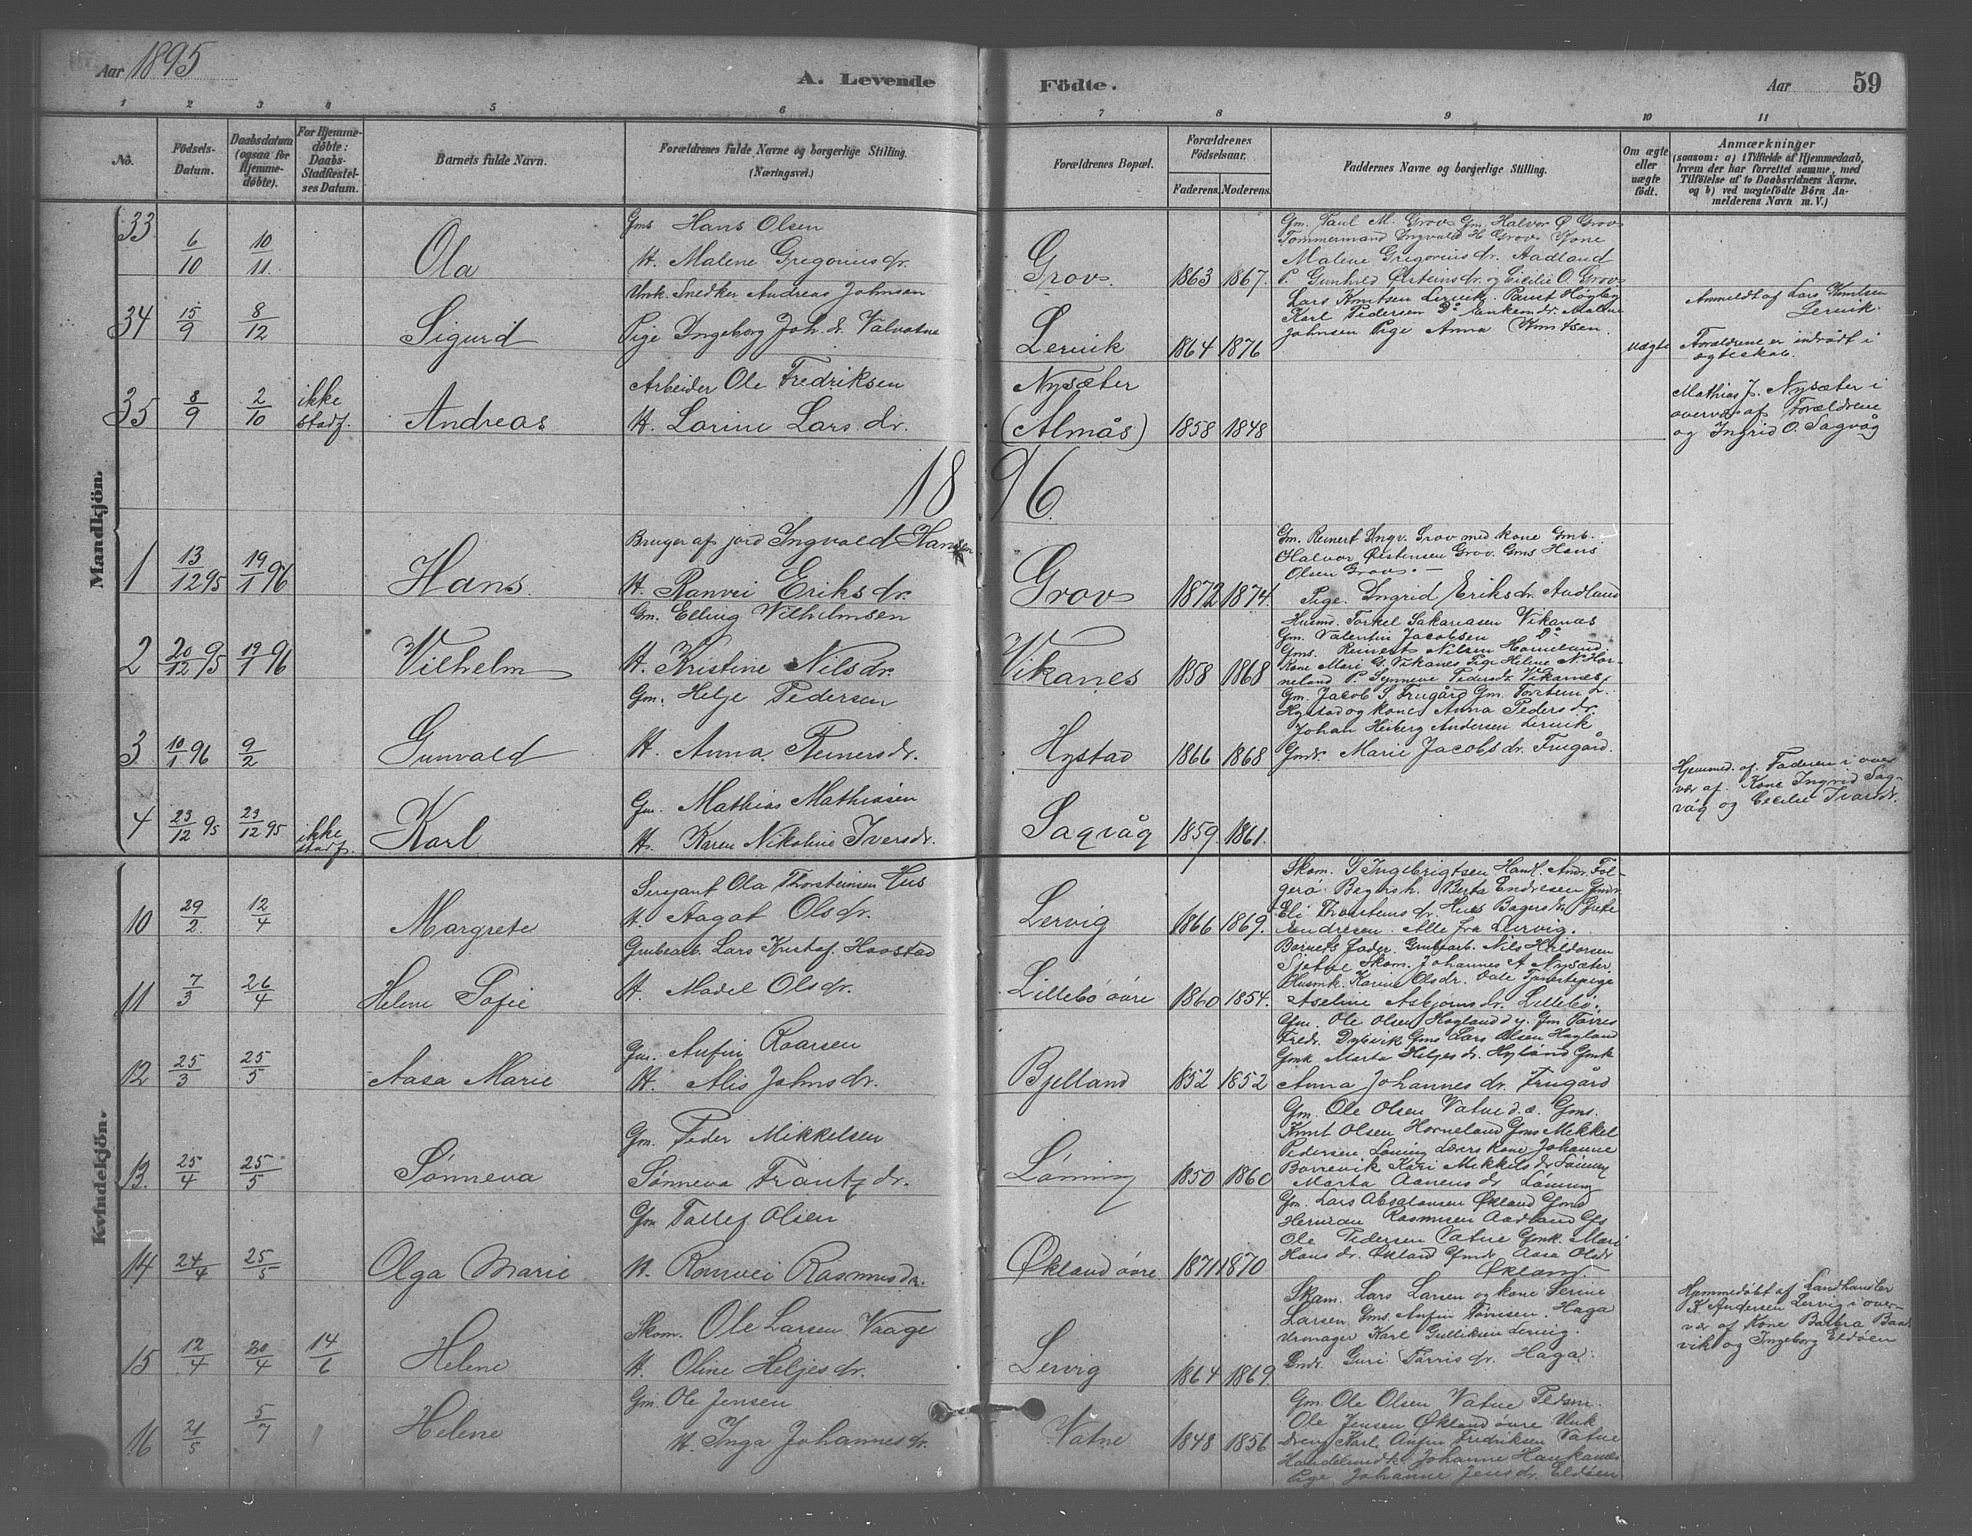 Aar 1895
A. Levende Födte.
Aar 59
1 2 3 4 5 6 7 8 9 10 11
No.
Födsels-Datum.
Daabsdatum (ogsaa for Hjemme-döbte).
For Hjemme-döbte: Daabs-Stadfæstelses Datum.
Barnets fulde Navn.
Forældrenes fulde Navne og borgerlige Stilling. (Næringsvei.)
Forældrenes Bopæl.
Forældrenes Födselsaar.
Faderens. Moderens.
Faddernes Navne og borgerlige Stilling.
Om ægte eller uægte födt.
Anmærkninger
(saasom: a) i Tilfælde af Hjemmedaab,
hvem der har forrettet samme, med
Tilföielse af to Daabsvidners Navne,
og b) ved uægtefödte Börn An-
melderens Navn m. V.)
Mandkjön.
33 6/10 10/11 Ola
Gms Hans Olsen
H. Malene Gregorius dr.
Grov 1863 1867.
Gm. Paul M. Grov Gm. Halvor Ø Grov
Tømmermand Ingvald H Grov Kone
Malene Gregorius dr. Aadland
P. Gunhild Østeins dr og Cecilie O. Grov
34 15/9 8/12 Sigurd
Unk. Snedker Andreas Johnsen
Pige Ingeborg Joh. dr. Valvatne
Lervik 1864 1876
Lars Knutsen Lervik.
Karl Pedersen Do
Johnsen Pige Anna Knutsen.
uægte
Anmeldt af Lars Knutsen
Lervik.
Forældrene er indtrådt i
ægteskab.
35 8/9 2/10 ikke stadf. Andreas
Arbeider Ole Fredriksen
H. Larine Lars dr.
Nysæter
(Almås) 1858 1848
Mathias J. Nysæter i
overvær af Forældrene
og Ingrid O. Sagvåg
1896
1 13/12 95 19/1 96 Hans
Bruger af jord Ingvald Hansen
H. Ranvei Eriks dr.
Grov 1872 1874.
Gm. Reinert Ingv. Grov med kone Gmb.
Halvor Østensen Grov. Gms Hans
Olsen Grov. —
Pige. Ingrid Eriks dr. Aadland
2 20/12 95 19/1 96 Vilhelm
Gm. Elling Vilhelmsen
H. Kristine Nils dr.
Vikanes 1858 1868
Husms. Torkel Sakariasen Vikanes
Gm. Valentin Jacobsen Do
Gms. Reinert Nilsen Horneland.
Kone Mari G. Vikanes Pige Helene N. Hor-
neland P. Synneve Peders dr. Vikanes
3 10/1 96 9/2 Gunvald
Gm. Helje Pedersen
H. Anna Reiners dr.
Hystad 1866 1868
Gm. Jacob S. Frugård Gm. Torstein L.
Hystad og kone Anna Peders dr.
Johan Heiberg Andersen Lervik
Gmdr. Marie Jacobs dr. Frugård.
4 23/12 95 23/12 95 ikke stadf. Karl
Gm. Mathias Mathiasen
H. Karen Nikoline Ivers dr.
Sagvåg 1859. 1861.
Hjemmed. af Faderen i over
vær af Kone Ingrid Sag-
våg og Cecilie Ivarsdr.
Kvindekjön.
10 29/2 12/4 Margrete
Serjant Ola Thorsteinsen Hus
H. Aagot Ols dr.
Lervig 1866 1869.
Skom. T Ingebrigtsen Handl. Andr. Fol-
gerø. Bagersk. Berta Endresen Gmdr.
Eli Thorsteins dr. Hus Bagersk. Grete
Endresen. Alle fra Lervig.
11 7/3 26/4 Helene Sofie
Grubearb. Lars Kristof. Haastad
H. Madel Ols dr.
Lillebø øvre 1860 1854.
Barnets fader. Grubearb. Nils Haldorsen
Skom. Johannes A Nysæter,
Husmk. Karine Ols dr. Dale Tjenestepige
Aseline Asbjørns dr. Lillebø.
12 25/3 25/5 Aasa Marie
Gm. Anfin Roarsen
H. Alis Johns dr.
Bjelland 1852 1852
Gm. Ole Olsen Høgland d.y. Gm Tørres
Fredr. Dybvik Gms Lars Olsen Høyland
Gmk Marta Heljes dr. Hyland Gmk
Anna Johannes dr. Frugård
13. 25/4 25/5 Sønneva
Gm. Peder Mikkelsen
Sønneva Frantz dr.
Lønning 1850 1860
Gm. Ole Olsen Vatne d.æ. Gms.
Knut Olsen Horneland Gms Mikkel
Pedersen Lønning Lærers kone Johanne
Borrevik Kari Mikkels dr Lønning
Marta Aanens dr. Lønning
14 24/4 25/5 Olga Marie
Gm Tollef Olsen
H. Ranvei Rasmus dr.
Økland øvre. 1871 1870
Gm. Lars Absalonsen Økland Gms
Herman Rasmusen Aadland Gs
Ole Pedersen Vatne Gmk. Mari
Hans dr. Økland Gmdr. Aasa Ols dr
Økland.
15 12/4 20/4 14/6 Helene
Skom. Ole Larsen Vaage
H. Oline Heljes dr.
Lervig 1864 1869.
Skom. Lars Larsen og kone Serine
Larsen. Gms. Anfin Tørrisen. Haga
Urmager Karl Gulliksen Lervig.
Gmdr. Guri Tørris dr. Haga.
Hjemmedøbt af Landhandler
K Andersen Lervig i over-
vær af Kone Barbra Baar
vik og Ingeborg Eldøen
16 21/5 5/7 " Helene
Gm. Ole Jensen
H. Inga Johannes dr.
Vatne 1848 1856
Gm. Ole Olsen Vatne
Ole Jensen Økland øvre Unk
Dreng Karl Anfin Fredriksen Vatne
Johanne Haukanes
Pige Johanne Jens dr. Eldøen